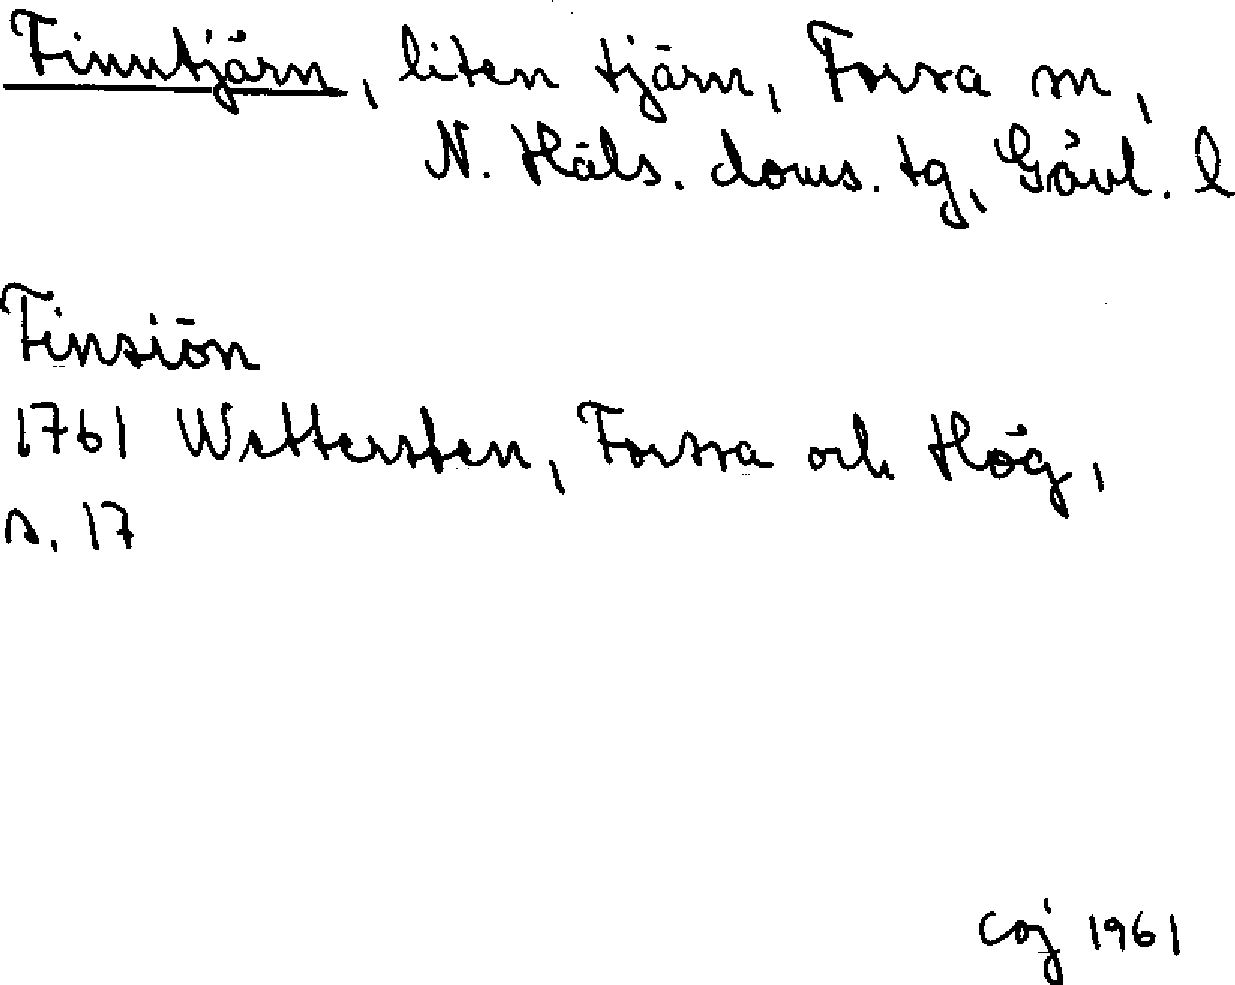 Finntjärn, liten tjärn, Forsa sn,
N. Häls. doms. tg, Gävl. l
Finsiön
1761 Wettersten, Forssa och Hög,
s. 17
coj 1961